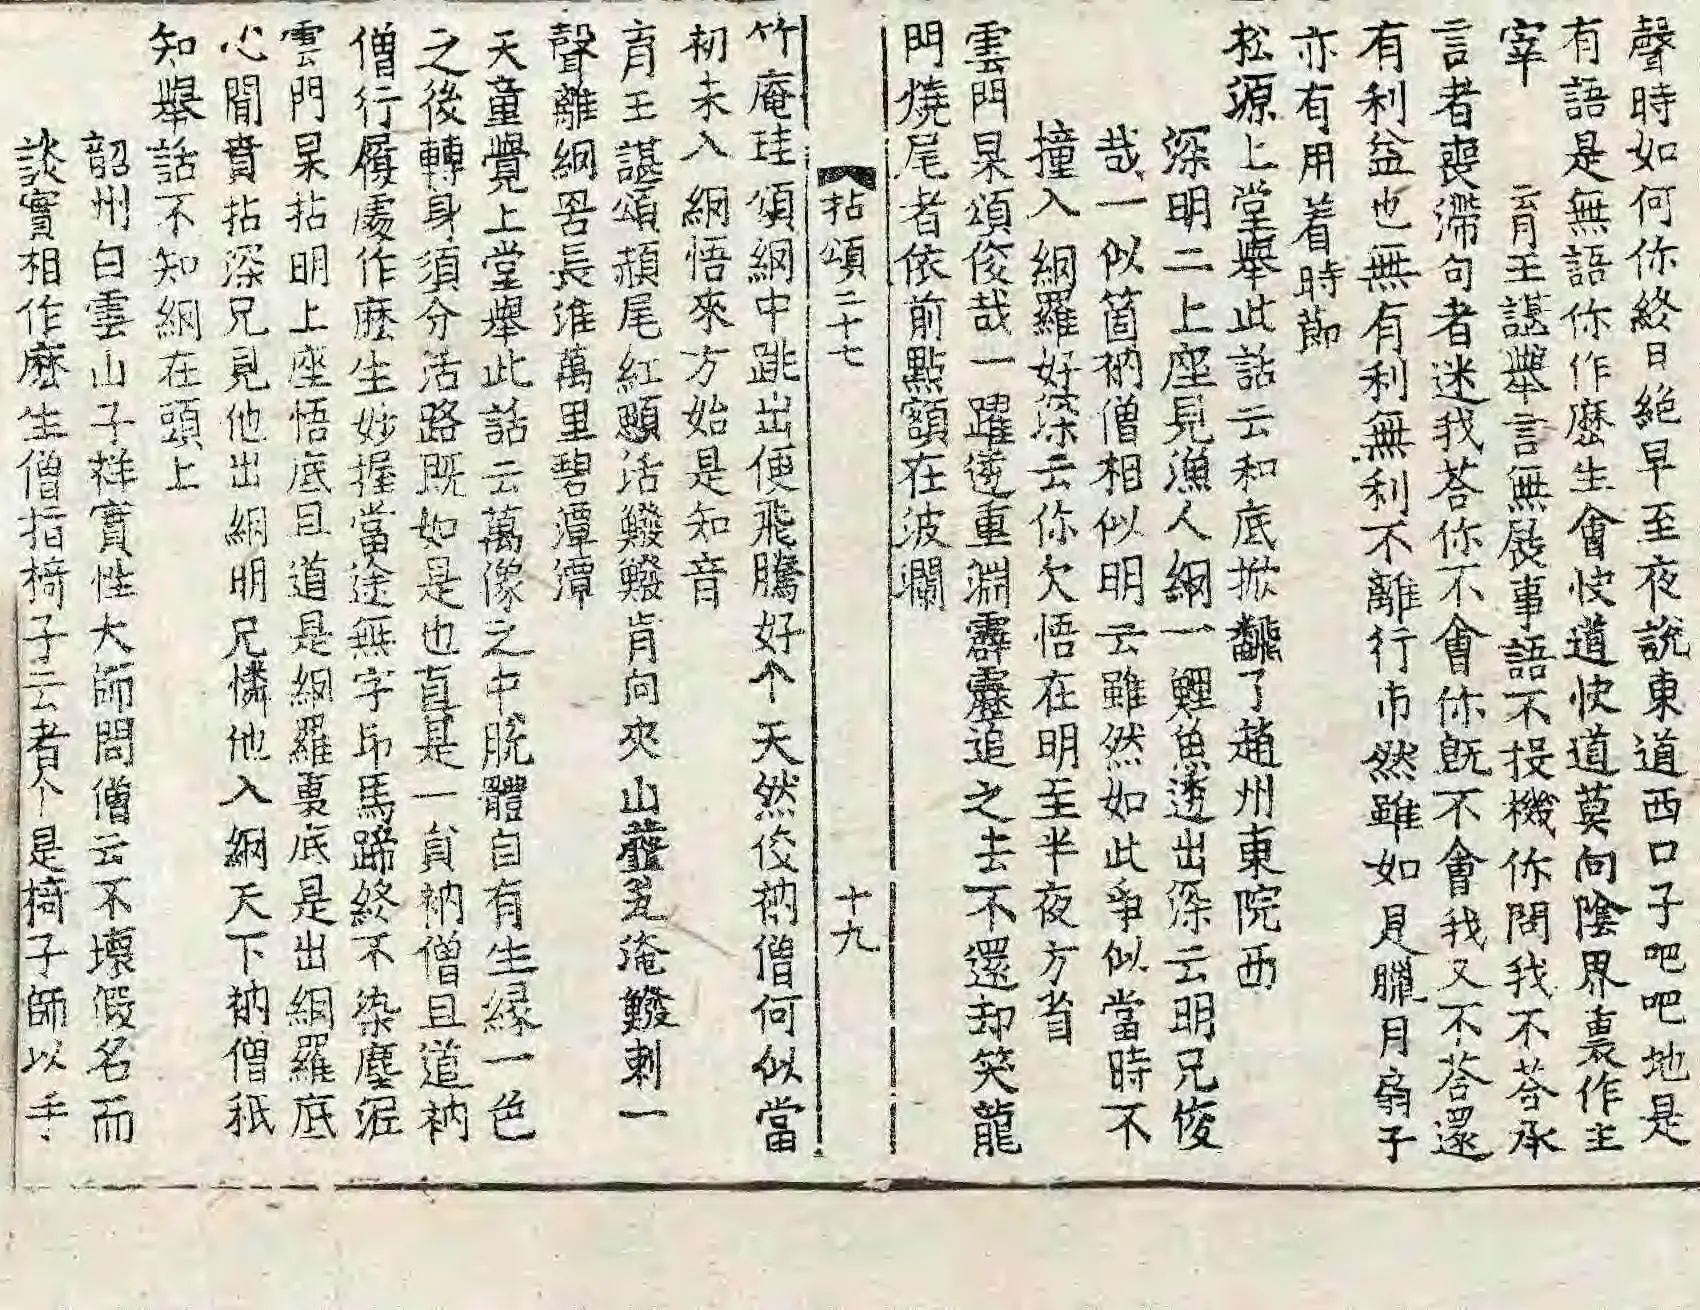 聲時如何你終日絶早至夜說東道西口子吧吧地是
有語是無語你作麽生會快道快道莫向陰界裏作主
宰 育王諶擧言無展事語不投機你問我不荅承
言者喪滯句者迷我荅你不會你旣不會我又不荅還
有利益也無有利無利不離行市然雖如是臘月扇子
亦有用着時節
松源上堂擧此話云和底掀飜了趙州東院西
深明二上座見漁人網一鯉魚透出深云明兄俊
哉一似箇衲僧相似明云雖然如此爭似當時不
撞入網羅好深云你欠悟在明至半夜方省
雲門杲頌俊哉一躍透重淵霹靂追之去不還却笑龍
門燒尾者依前點額在波瀾
拈頌二十七 十九
竹庵珪頌網中跳出便飛騰好个天然俊衲僧何似當
初未入網悟來方始是知音
育王諶頌頳尾紅顋活鱍鱍肯向夾山淹鱍剌一
聲離網罟長淮萬里碧潭潭
天童覺上堂擧此話云萬像之中脫體自有生緣一色
之後轉身須分活路旣如是也直是一員衲僧且道衲
僧行履處作麽生妙握當途無字印馬蹄終不染塵泥
雲門杲拈明上座悟底且道是網羅裏底是出網羅底
心聞賁拈深兄見他出網明兄憐他入網天下衲僧秖
知擧話不知網在頭上
韶州白雲山子祥實性大師問僧云不壞假名而
談實相作麽生僧指椅子云者个是椅子師以手